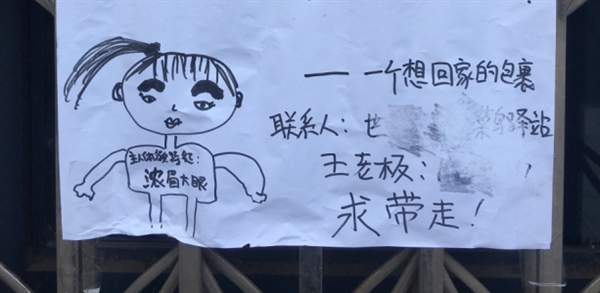 主人体貌特征：
浓眉大眼
——一个想回家的包裹
联系人：世 驿站
王老板：
求带走！